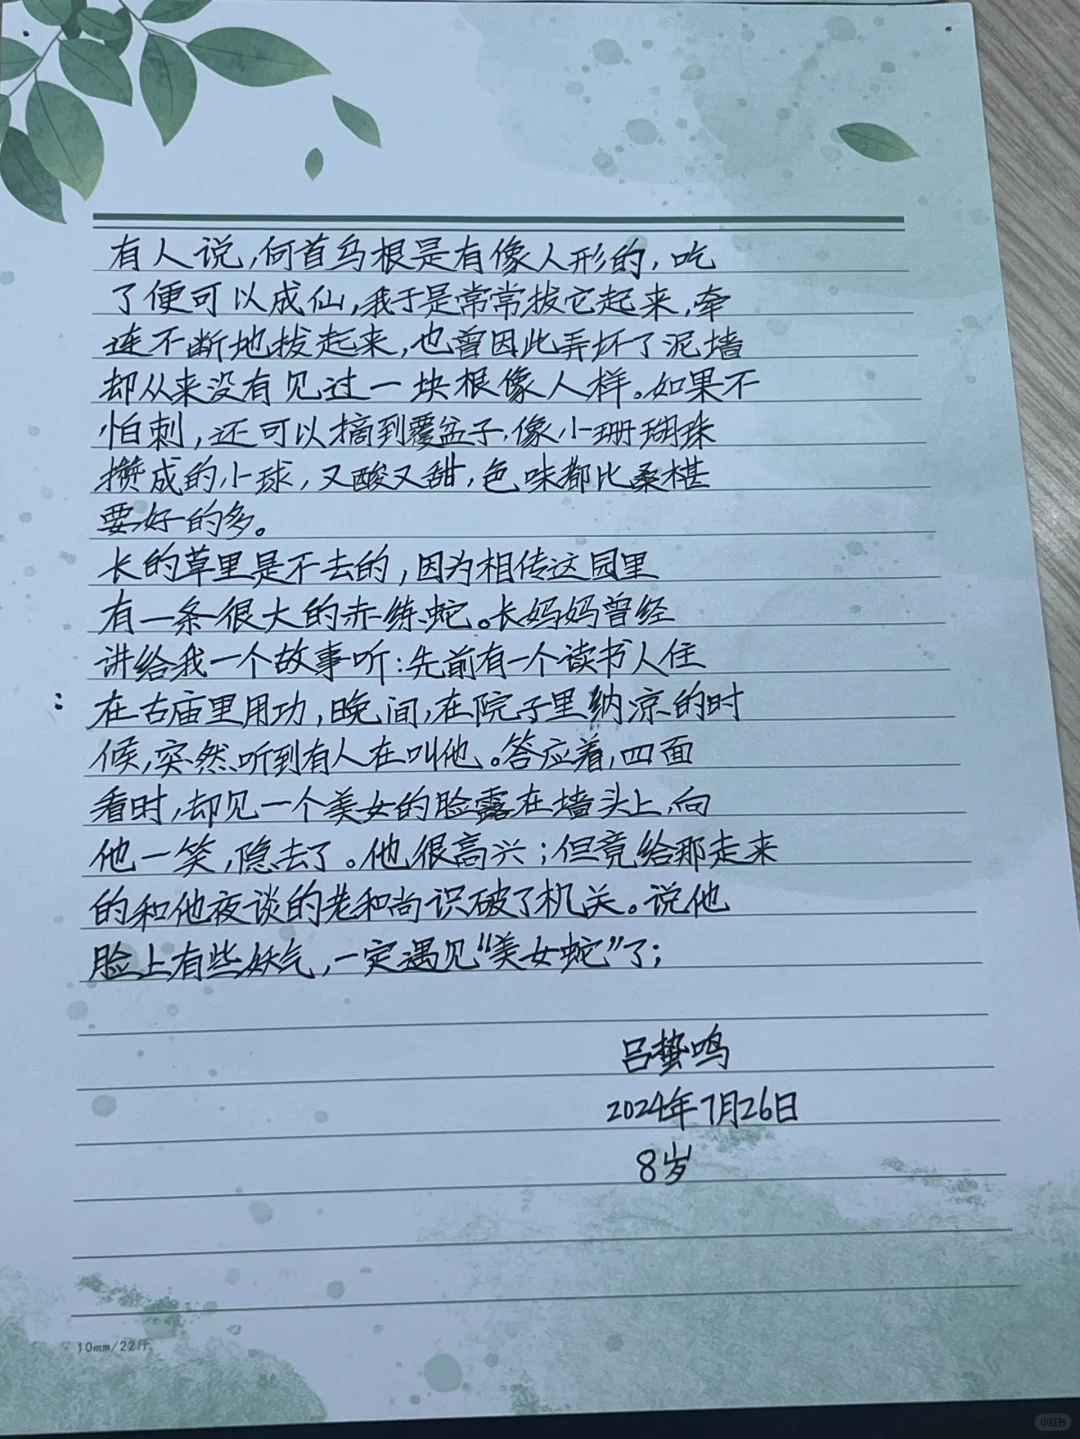 有人说,何首乌根是有像人形的,吃
了便可以成仙,我于是常常拔它起来,牵
连不断地拔起来,也曾因此弄坏了泥墙
却从来没有见过一块根像人样。如果不
怕刺,还可以摘到覆盆子,像小珊瑚珠
攒成的小球,又酸又甜,色味都比桑椹
要好的多。
长的草里是不去的,因为相传这园里
有一条很大的赤练蛇。长妈妈曾经
讲给我一个故事听:先前有一个读书人住
在古庙里用功,晚间,在院子里纳凉的时
候,突然听到有人在叫他。答应着,四面
看时,却见一个美女的脸露在墙头上,向
他一笑,隐去了。他很高兴;但竟给那走来
的和他夜谈的老和尚识破了机关。说他
脸上有些妖气,一定遇见“美女蛇”了;
吕蛰鸣
2024年7月26日
8岁
10mm/22行
小红书